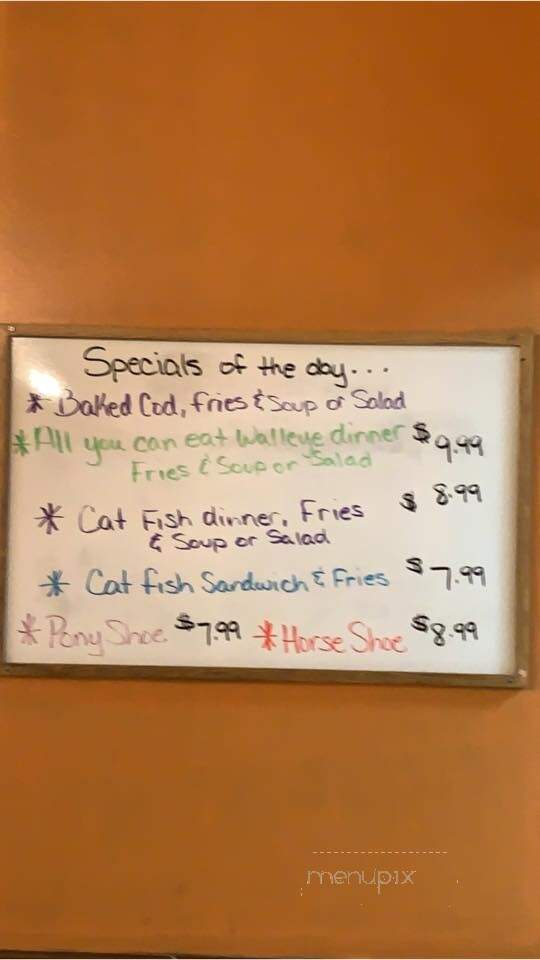 Specials of the day...
* Baked Cod, Fries & Soup or Salad
* All you can eat Walleye dinner $9.99
Fries & Soup or Salad
* Cat Fish dinner, Fries $8.99
& Soup or Salad
* Cat fish Sandwich & Fries $7.99
* Pony Shoe $7.99 * Horse Shoe $8.99
menupix